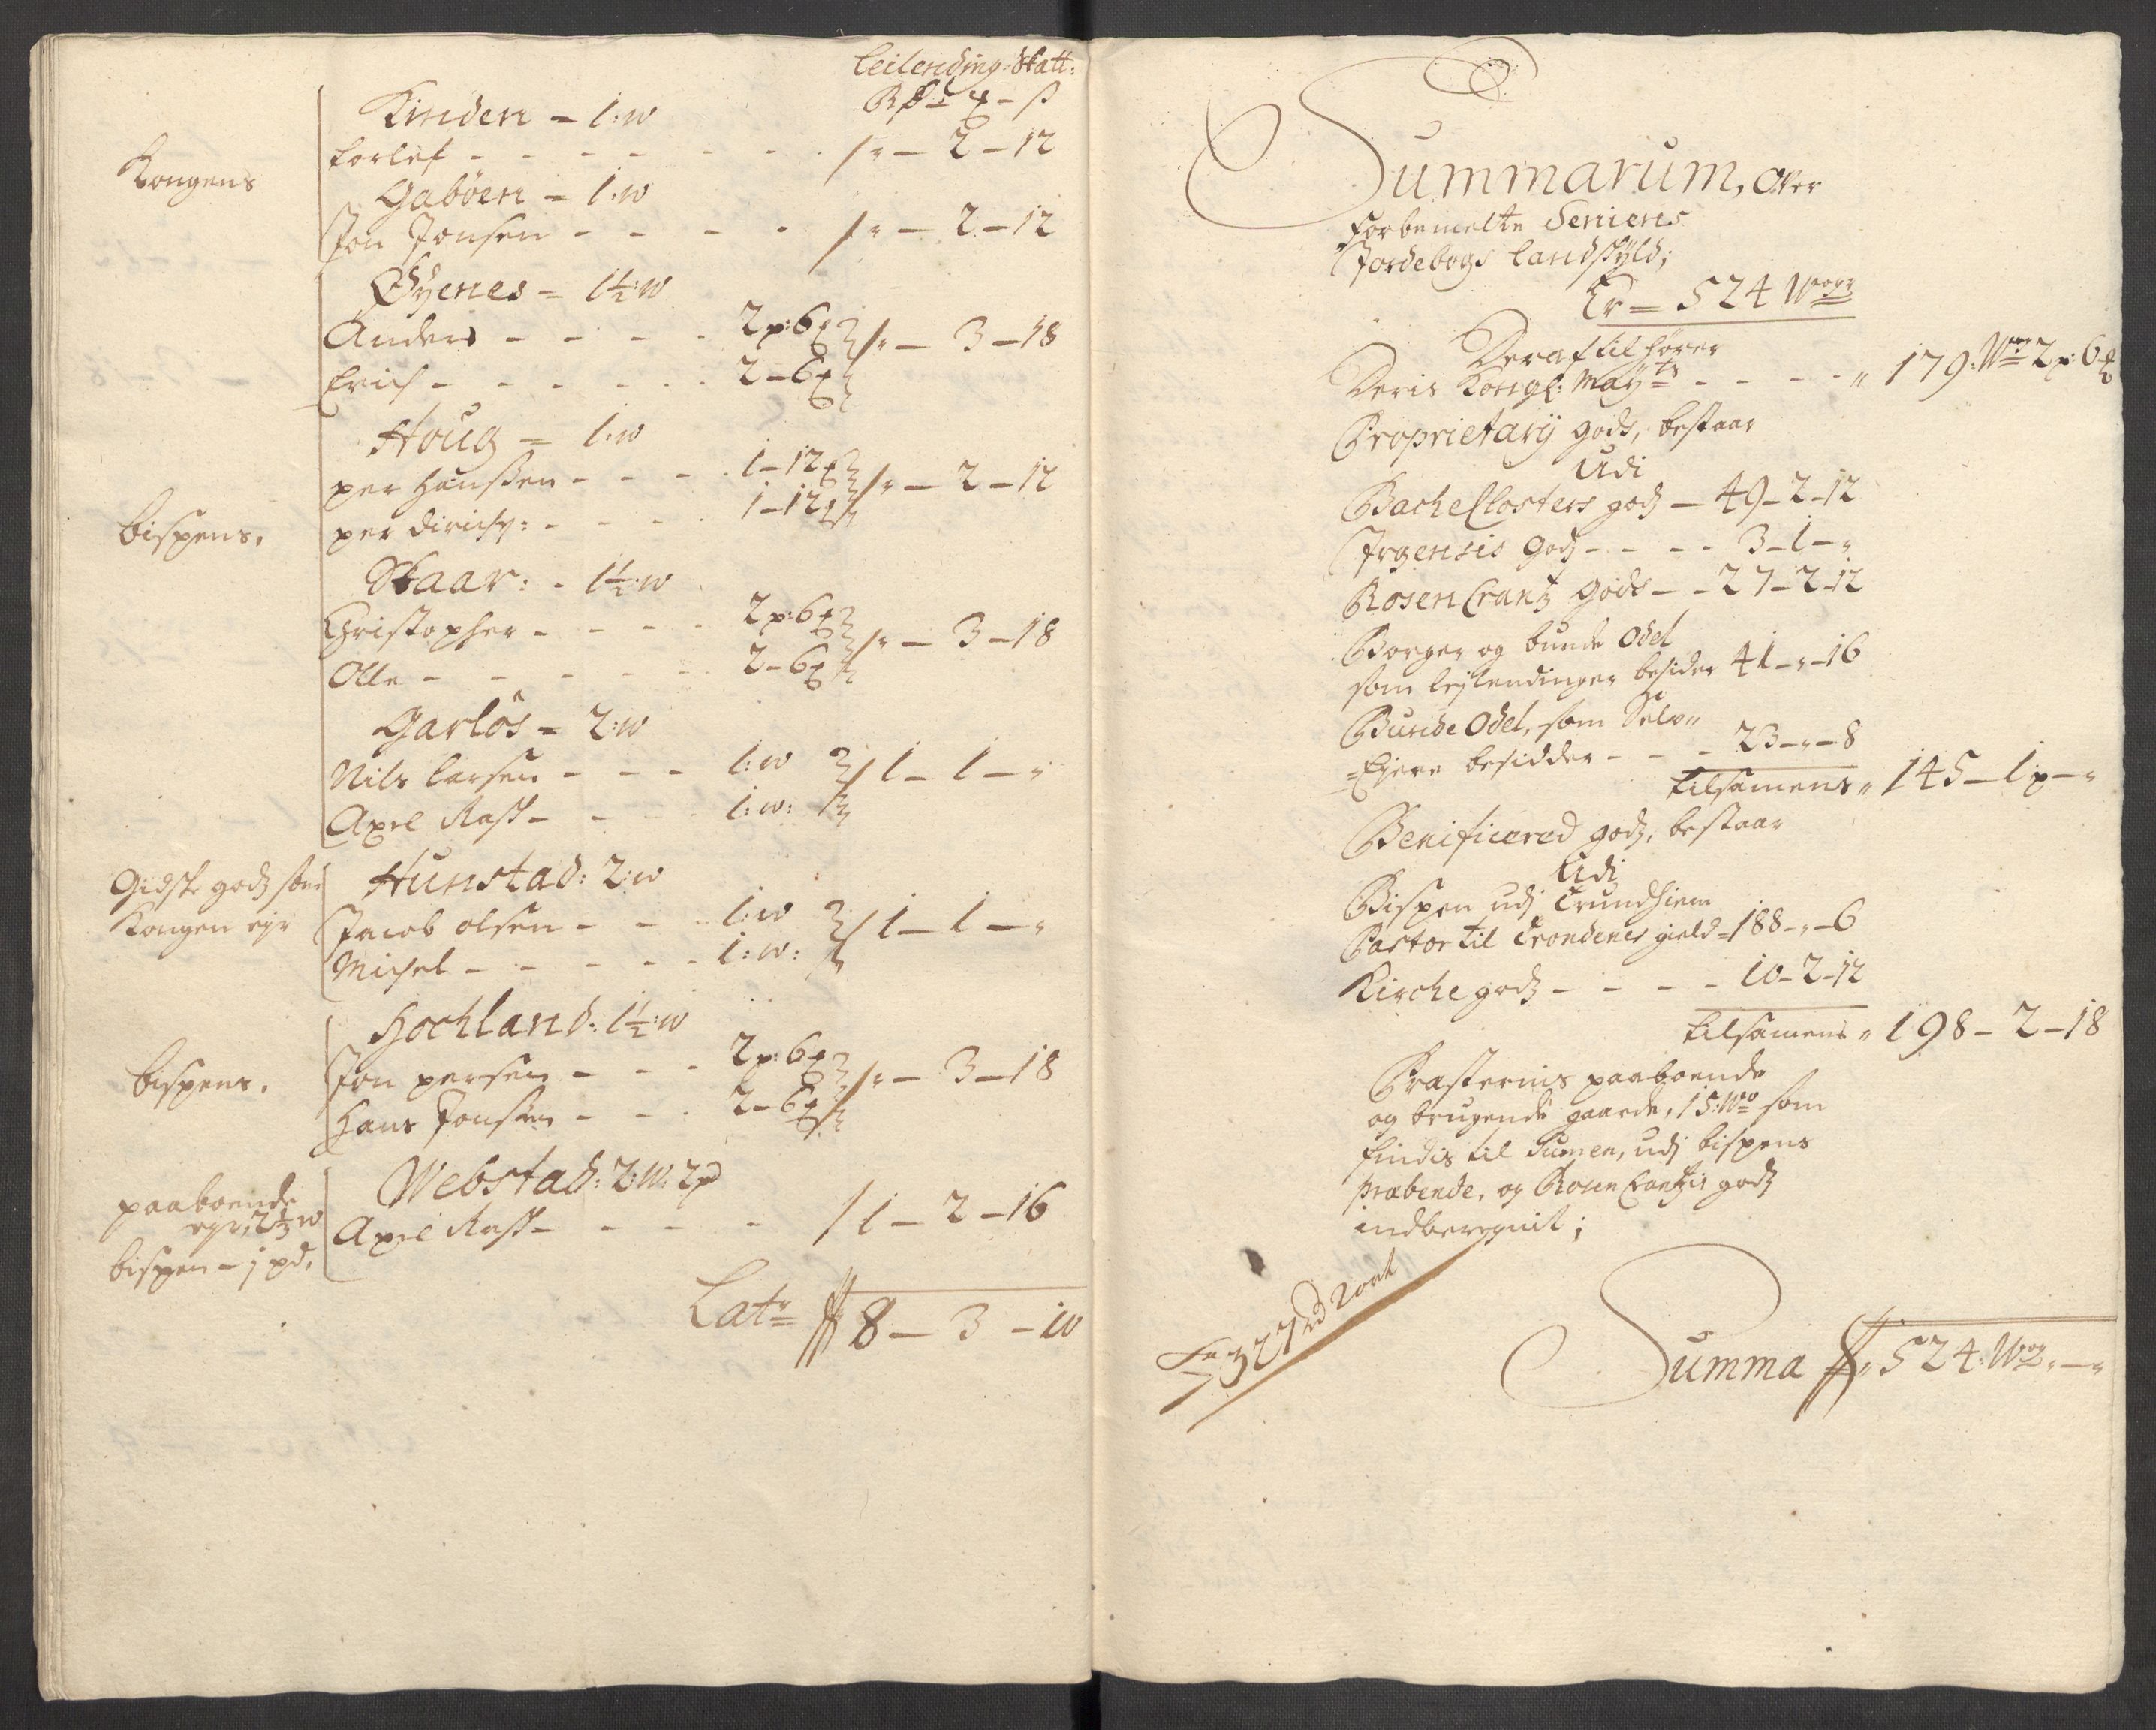 Leilending: Skatt:
Kinden = 1:w
Kongens
Torlef - - - - - - - /" - 2 - 12
Gabøen = 1:w
Jon Jonsen - - - - /" - 2 - 12
Øÿenes = 1½:w
Anders - - - - 2p:6 /" - 3 - 18
Erich - - - - - 2 - 6
Houg = 1:w
per Hanssen - - - - 1 - 12 /" - 2 - 12
bispens.
per dirichs: - - - - 1 - 12
Skaar: - 1½:w
Christopher - - - - 2p:6 /" - 3 - 18
Olle - - - - - - 2 - 6
Garløs = 2:w
Nils Larsen - - - 1:w / 1 - 1 - "
Axel Rask - - - 1:w:
Gidske godz som
Hunstad: 2:w
Kongen eyr
Jacob olsen - - - 1:w / 1 - 1 - "
Michel - - - - - 1:w:
Hochland: 1½:w
bispens.
Jon persen - - - 2p:6 /" - 3 - 18
Hans Jonsen - - - 2 - 6
Webstad: 2:W: 2p
paaboende
eyr, 2½ w
Axel Rask - - - - - / 1 - 2 - 16
bispen - 1 pd,
Lat: 8 - 3 - 10
Summarum, Over
forbemelte Seniens
Jordebogs Landskÿld;
Er = 524 Woger
Deraf tilhører
Deris Kongl: Mayts - - - - " 179: Wog 2p: 6
Proprietarÿ gods, bestaar
Udi
Bache Closters godz - 49 - 2 - 12
Irgensis Godz - - - - 3 - 1 - "
Rosen Crantz Gods - - 27 - 2 - 12
Borger og bunde Odel
som leylendinger besider 41 - " - 16
Bunde Odel, som Selv"
=Ejere besidder - - - 23 - " - 8
tilsamens " 145 - 1p - "
Benificered godz, bestaar
Udi
Bispen udj Trundhiem
Pastor til Trondenes gield = 188 - " - 6
Kirche godz - - - - 10 - 2 - 12
tilsamens " 198 - 2 - 18
Præsternis paaboende
og brugende gaarde, 15: Wo som
findis til Sumen, udj bispens
præbende, og Rosen Crantzis godz
indberegnit;
327 
Summa 524: Wog " - "